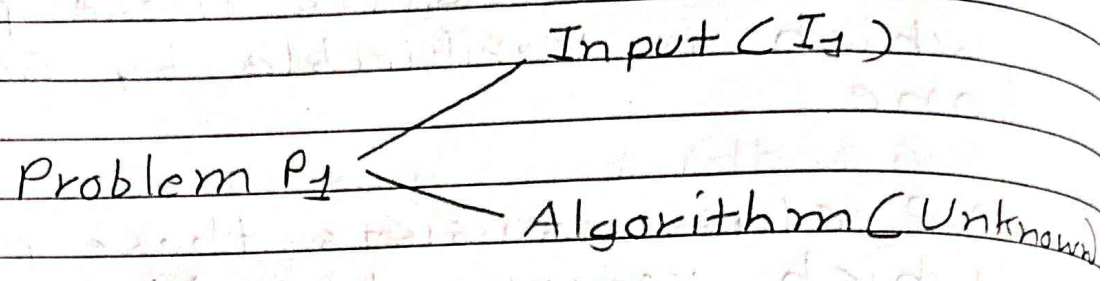 Input (I1)
Problem P1
Algorithm (Unknown)